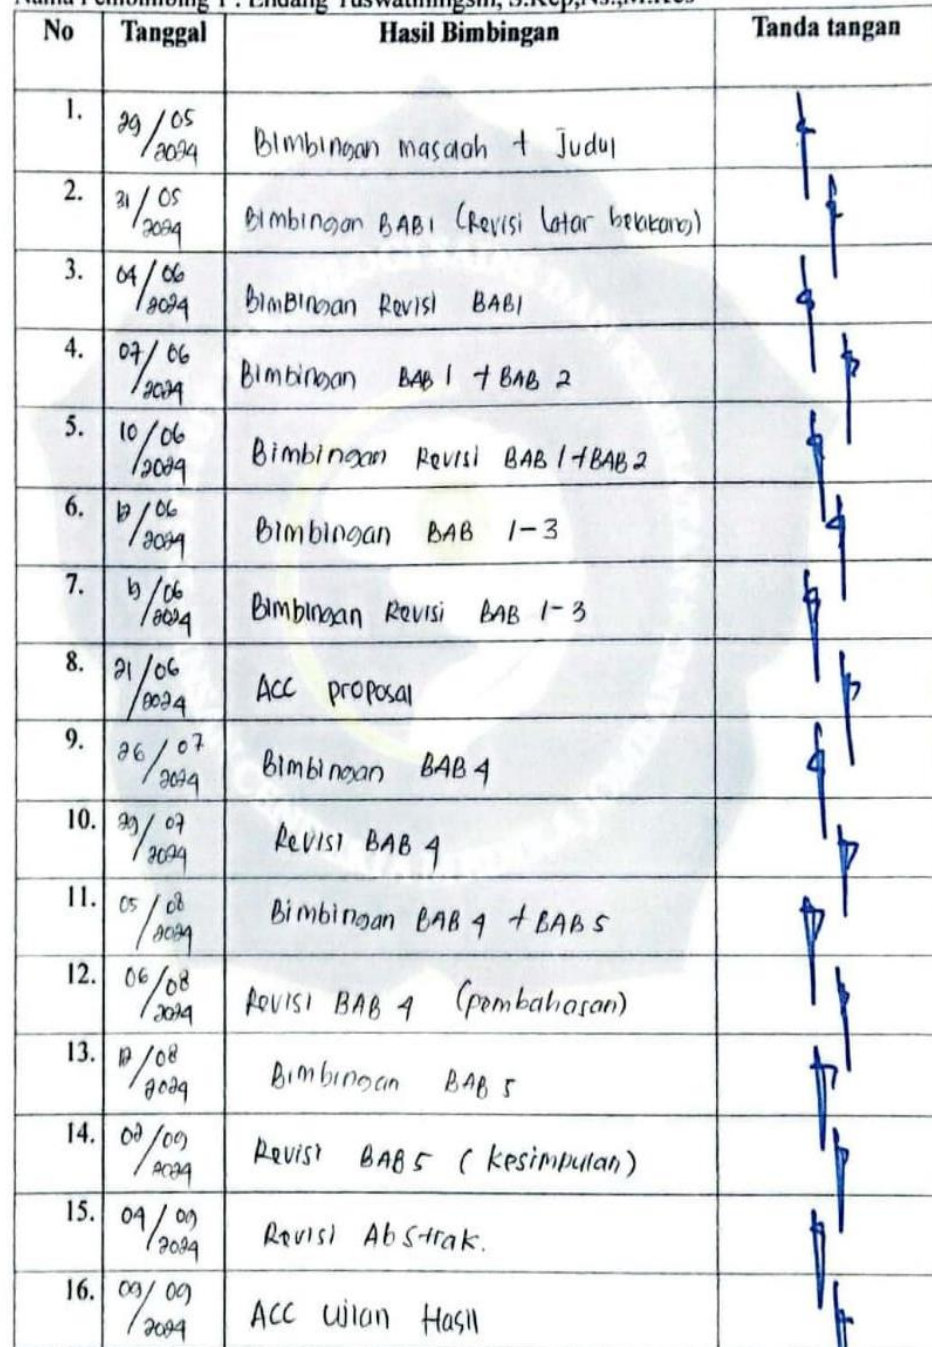 No Tanggal Hasil Bimbingan Tanda tangan
1. 29/05/2024 Bimbingan masalah + Judul
2. 31/05/2024 Bimbingan BAB1 (Revisi latar belakang)
3. 04/06/2024 Bimbingan Revisi BAB1
4. 07/06/2024 Bimbingan BAB 1 + BAB 2
5. 10/06/2024 Bimbingan Revisi BAB 1 + BAB 2
6. 12/06/2024 Bimbingan BAB 1-3
7. /06/2024 Bimbingan Revisi BAB 1-3
8. 21/06/2024 ACC proposal
9. 26/07/2024 Bimbingan BAB 4
10. 29/07/2024 Revisi BAB 4
11. 05/08/2024 Bimbingan BAB 4 + BAB 5
12. 06/08/2024 Revisi BAB 4 (pembahasan)
13. 12/08/2024 Bimbingan BAB 5
14. 02/09/2024 Revisi BAB 5 (kesimpulan)
15. 04/09/2024 Revisi Abstrak.
16. 09/09/2024 ACC Ujian Hasil